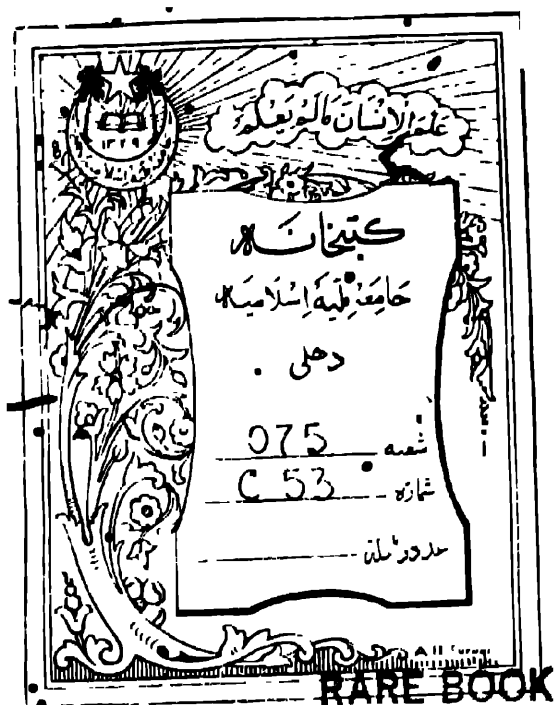 علم الإنسان مالم يعلم
١٣٣٩
کتبخانہ
جامعہ ملیہ اسلامیہ
دهلی
شعبہ 075
شمارہ C 53
RARE BOOK